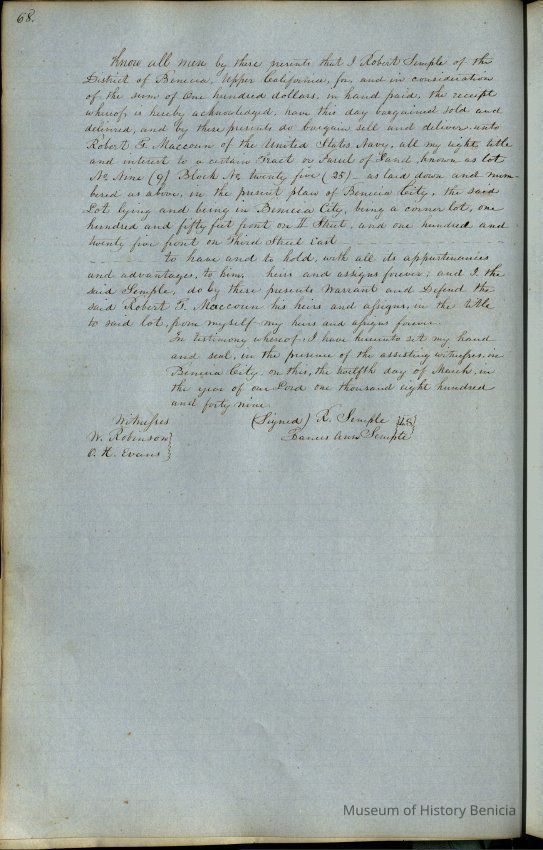 68.
Know all men by these presents that I Robert Semple of the
District of Benicia, Upper California, for, and in consideration
of the sum of One hundred dollars, in hand paid, the receipt
whereof, is hereby acknowledged, have this day bargained sold and
delivered, and by these presents do bargain sell and deliver, unto
Robert F. Maccoun of the United States Navy, all my right, title
and interest to a certain Tract or Parcel of Land, known as lot
No Nine (9) Block No twenty five (25) – as laid down and num-
bered as above, in the present plan of Benicia City, the said
Lot lying and being in Benicia City, being a corner lot, one
hundred and fifty feet front on H Street, and one hundred and
twenty five front on Third Street East
to have and to hold, with all its appurtenances
and advantages, to him, heirs and assigns forever; and I the
said Semple, do by these presents Warrant and Defend the
said Robert F. Maccoun his heirs and assigns, in the title
to said lot, from myself my heirs and assigns forever.
In testimony whereof I have hereunto set my hand
and seal, in the presence of the assisting witnesses, in
Benicia City, on this, the twelfth day of March, in
the year of our Lord one thousand eight hundred
and forty nine.
Witnesses (Signed) R. Semple {LS}
W. Robinson} Frances Ann Semple
O. H. Evans}
Museum of History Benicia